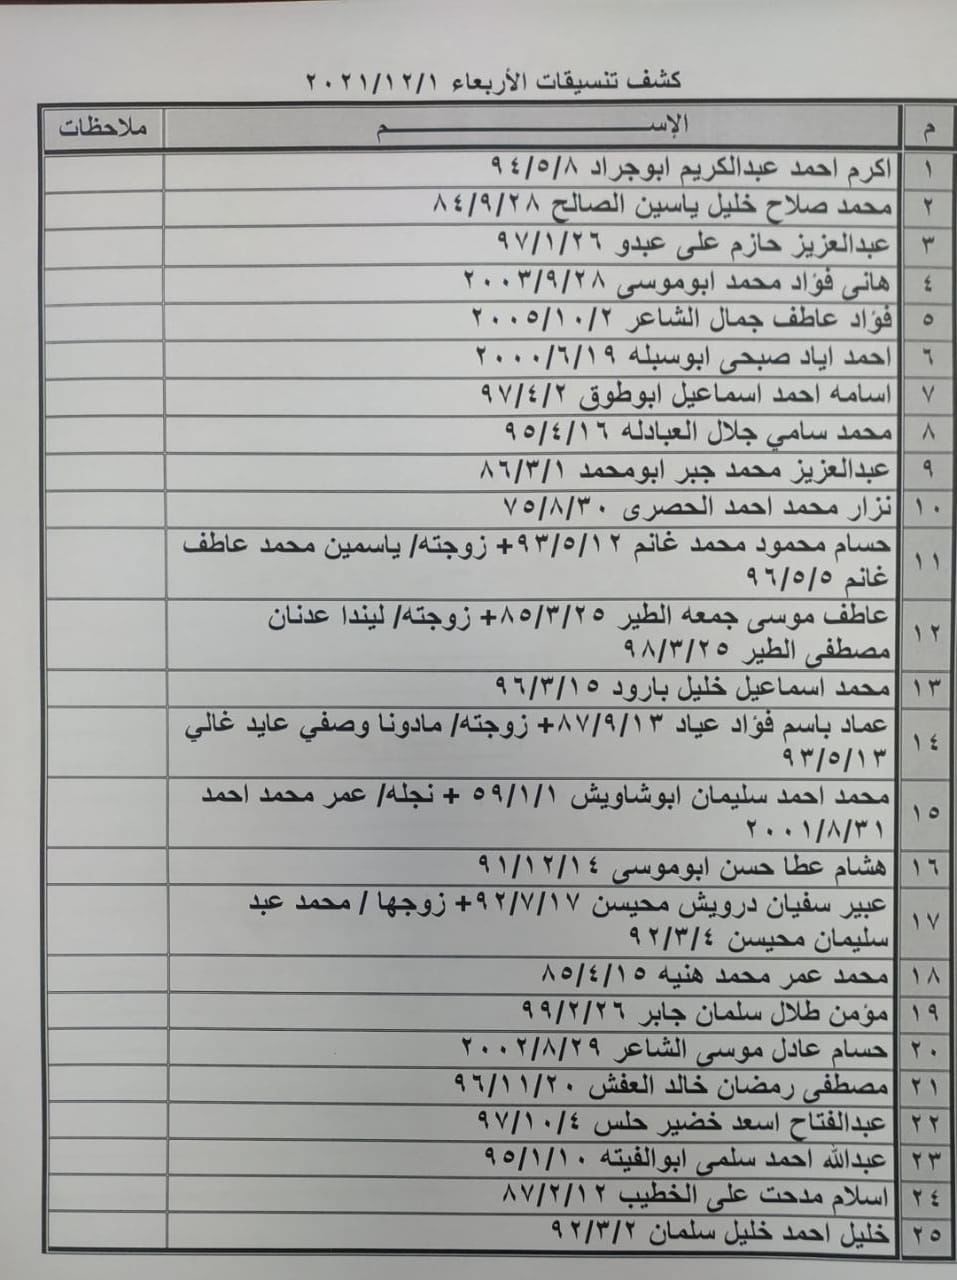 كشف تنسيقات الأربعاء ٢٠٢١/١٢/١
م الإســـــــــــــــــــم ملاحظات
١ اكرم احمد عبدالكريم ابوجراد ٩٤/٥/٨
٢ محمد صلاح خليل ياسين الصالح ٨٤/٩/٢٨
٣ عبدالعزيز حازم على عبدو ٩٧/١/٢٦
٤ هانى فؤاد محمد ابوموسى ٢٠٠٣/٩/٢٨
٥ فؤاد عاطف جمال الشاعر ٢٠٠٥/١٠/٢
٦ احمد اياد صبحى ابوسبله ٢٠٠٠/٦/١٩
٧ اسامه احمد اسماعيل ابوطوق ٩٧/٤/٢
٨ محمد سامي جلال العبادله ٩٥/٤/١٦
٩ عبدالعزيز محمد جبر ابومحمد ٨٦/٣/١
١٠ نزار محمد احمد الحصرى ٧٥/٨/٣٠
١١ حسام محمود محمد غانم ٩٣/٥/١٢+ زوجته/ ياسمين محمد عاطف
غانم ٩٦/٥/٥
١٢ عاطف موسى جمعه الطير ٨٥/٣/٢٥+ زوجته/ ليندا عدنان
مصطفى الطير ٩٨/٣/٢٥
١٣ محمد اسماعيل خليل بارود ٩٦/٣/١٥
١٤ عماد باسم فؤاد عياد ٨٧/٩/١٣+ زوجته/ مادونا وصفي عايد غالي
٩٣/٥/١٣
١٥ محمد احمد سليمان ابوشاويش ٥٩/١/١ + نجله/ عمر محمد احمد
٢٠٠١/٨/٣١
١٦ هشام عطا حسن ابوموسى ٩١/١٢/١٤
١٧ عبير سفيان درويش محيسن ٩٢/٧/١٧+ زوجها / محمد عبد
سليمان محيسن ٩٢/٣/٤
١٨ محمد عمر محمد هنيه ٨٥/٤/١٥
١٩ مؤمن طلال سلمان جابر ٩٩/٢/٢٦
٢٠ حسام عادل موسى الشاعر ٢٠٠٢/٨/٢٩
٢١ مصطفى رمضان خالد العفش ٩٦/١١/٢٠
٢٢ عبدالفتاح اسعد خضير حلس ٩٧/١٠/٤
٢٣ عبدالله احمد سلمى ابوالفيته ٩٥/١/١٠
٢٤ اسلام مدحت على الخطيب ٨٧/٢/١٢
٢٥ خليل احمد خليل سلمان ٩٢/٣/٢